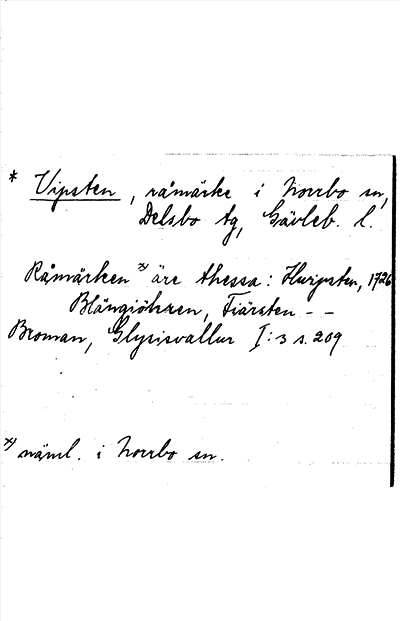 * Vipsten, råmärke i Norrbo sn,
Delsbo tg, Gävleb. l.
Råmärken *) äre thessa: Hwipsten, 1726
Blängiöhren, Fiärsten - -
Broman, Glysisvallur I:3 s. 209
*) näml. i Norrbo sn.